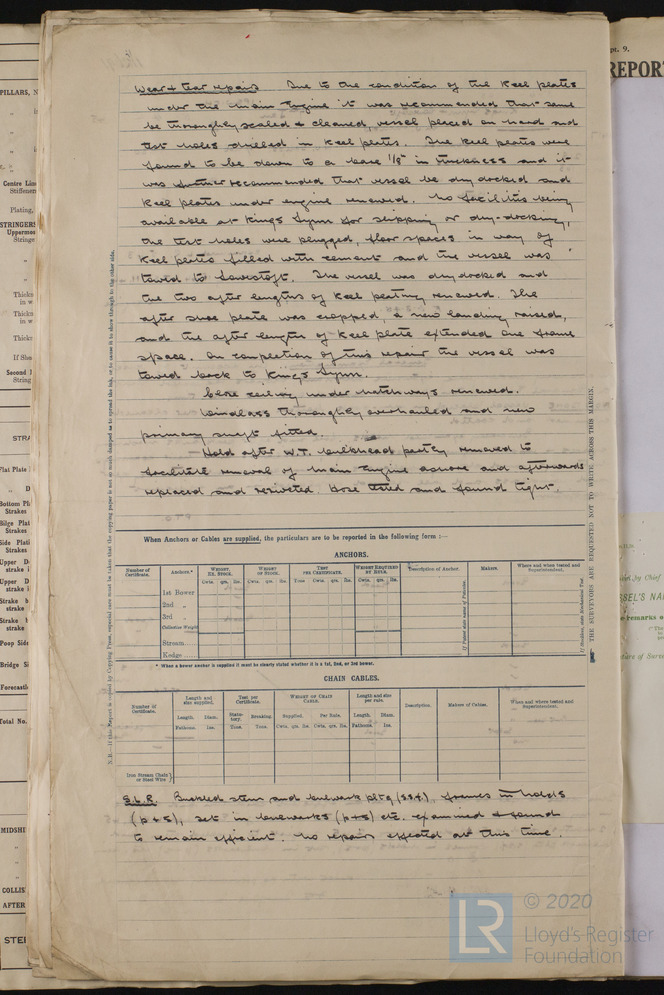 Wear & tear repairs Due to the condition of the Keel plates
under the main Engine it was recommended that same
be thoroughly scaled & cleaned, vessel placed on hard and
test holes drilled in Keel plates. The Keel plates were
found to be down to a bare 1/8" in thickness and it
was further recommended that vessel be dry docked and
Keel plates under engine renewed. No facilities being
available at Kings Lynn for slipping or dry-docking,
the test holes were plugged, floor spaces in way of
Keel plates filled with cement and the vessel was
towed to Lowestoft. The vessel was dry docked and
the two after lengths of Keel plating renewed. The
after shoe plate was cropped, a new landing raised,
and the after length of Keel plate extended one frame
space. On completion of this repair the vessel was
towed back to Kings Lynn.
Close ceiling under hatchways renewed.
Windlass thoroughly overhauled and new
primary shaft fitted.
Hold after W.T. bulkhead partly removed to
facilitate removal of main Engine ashore and afterwards
replaced and reriveted. Hose tested and found tight.
When Anchors or Cables are supplied, the particulars are to be reported in the following form :—
ANCHORS.
Number of Certificate. Anchors.* WEIGHT, EX. STOCK. WEIGHT OF STOCK. TEST PER CERTIFICATE. WEIGHT REQUIRED BY RULE. Description of Anchor. Makers. Where and when tested and Superintendent.
Cwts. qrs. lbs. Cwts. qrs. lbs. Tons Cwts. qrs. lbs. Cwts. qrs. lbs.
1st Bower
2nd „
3rd „
Collective Weight
Stream
Kedge
* When a bower anchor is supplied it must be clearly stated whether it is a 1st, 2nd, or 3rd bower.
CHAIN CABLES.
Number of Certificate. Length and size supplied. Test per Certificate. WEIGHT OF CHAIN CABLE. Length and size per rule. Description. Makers of Cables. When and where tested and Superintendent.
Length. Diam. Statutory. Breaking Supplied. Per Rule. Length. Diam.
Fathoms. Ins. Tons. Tons. Cwts. qrs. lbs. Cwts. qrs. lbs. Fathoms. Ins.
Iron Stream Chain or Steel Wire
S.L.R. Buckled stem and bulwark pltg (s.s.f.), frames in holds
(p & s), set in bulwarks (p & s) etc. examined & found
to remain efficient. No repairs effected at this time.
THE SURVEYORS ARE REQUESTED NOT TO WRITE ACROSS THIS MARGIN.
PILLARS,
Centre Line
Plating,
STRINGERS
If Sho
STRA
Flat Plate
Poop Side
Bridge Si
Forecastle
Total No.
MIDSHI
AFTER
REPOR
© 2020
Lloyd's Register
Foundation
LR